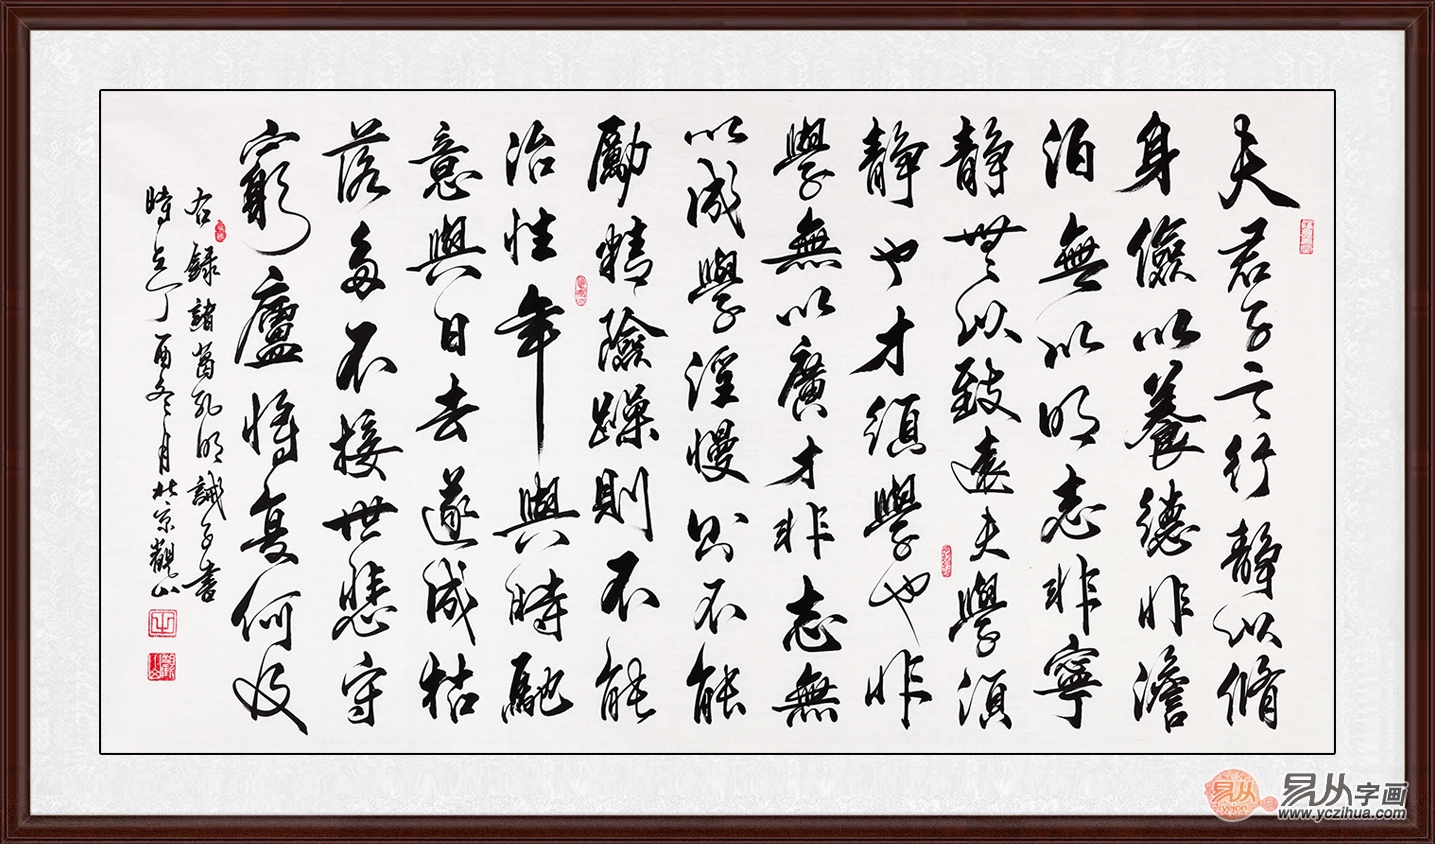 夫君子之行静以脩
身儉以養德非澹
泊無以明志非寧
静無以致遠夫學須
静也才須學也非
學無以廣才非志無
以成學淫慢則不能
勵精險躁則不能
治性年與時馳
意與日去遂成枯
落多不接世悲守
窮廬將復何及
右錄諸葛孔明誡子書
時在丁酉冬月北京觀山
易从
易从字画
www.yczihua.com